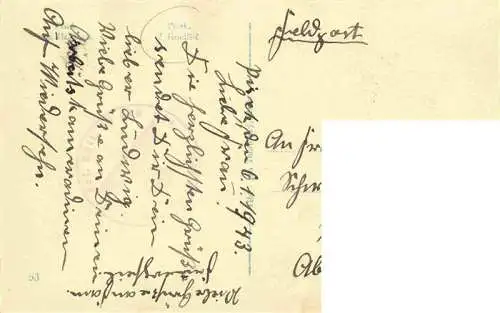 Feldpost
den 6.1.1943.
Liebe Frau.
Die herzlichsten Grüße
sendet Dir Dein
lieber Ludwig.
Viele Grüße an Deinen
Arbeitskameradinnen
Auf Wiedersehn.
Viele Grüße an
An
Ab
53